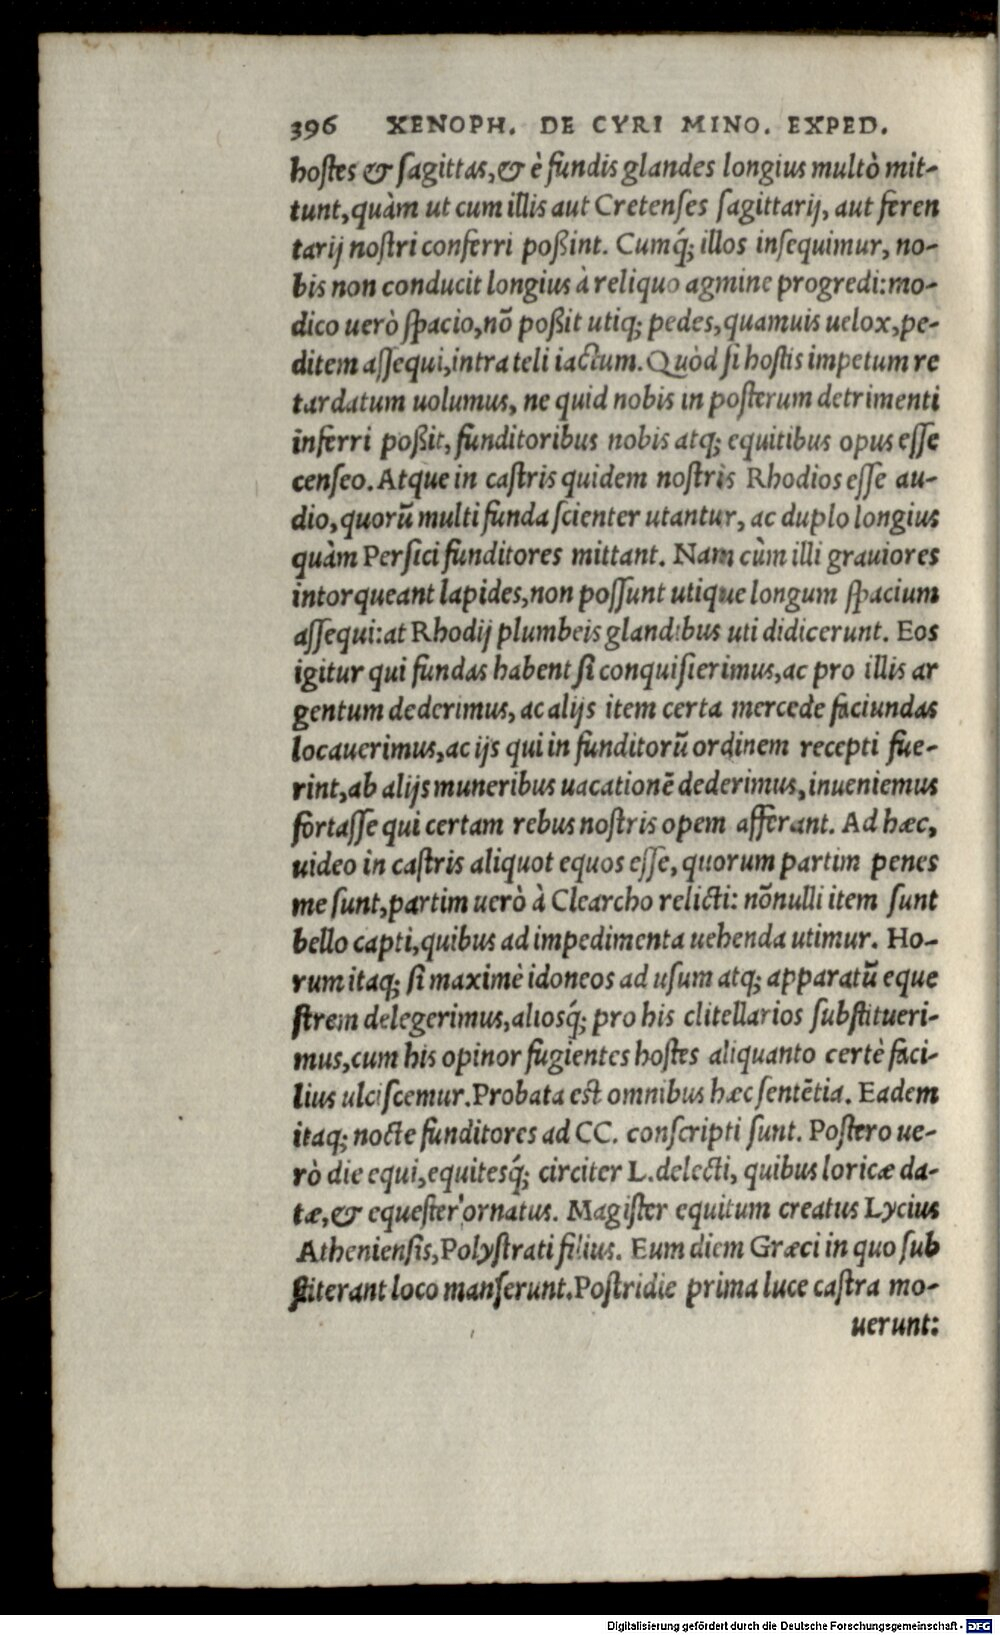 396 XENOPH. DE CYRI MINO. EXPED.
hoſtes & ſagittas, & è fundis glandes longius multò mit-
tunt, quàm ut cum illis aut Cretenſes ſagittarij, aut feren
tarij noſtri conferri poßint. Cumq́; illos inſequimur, no-
bis non conducit longius à reliquo agmine progredi: mo-
dico uerò ſpacio, nō poßit utiq; pedes, quamuis uelox, pe-
ditem aſſequi, intra teli iactum. Quòd ſi hoſtis impetum re
tardatum uolumus, ne quid nobis in poſterum detrimenti
inferri poßit, funditoribus nobis atq; equitibus opus eſſe
cenſeo. Atque in caſtris quidem noſtris Rhodios eſſe au-
dio, quorū multi funda ſcienter utantur, ac duplo longius
quàm Perſici funditores mittant. Nam cùm illi grauiores
intorqueant lapides, non poſſunt utique longum ſpacium
aſſequi: at Rhodij plumbeis glandibus uti didicerunt. Eos
igitur qui fundas habent ſi conquiſierimus, ac pro illis ar
gentum dederimus, ac alijs item certa mercede faciundas
locauerimus, ac ijs qui in funditorū ordinem recepti fue-
rint, ab alijs muneribus uacationē dederimus, inueniemus
fortaſſe qui certam rebus noſtris opem afferant. Ad hæc,
uideo in caſtris aliquot equos eſſe, quorum partim penes
me ſunt, partim uerò à Clearcho relicti: nōnulli item ſunt
bello capti, quibus ad impedimenta uehenda utimur. Ho-
rum itaq; ſi maximè idoneos ad uſum atq; apparatū eque
ſtrem delegerimus, aliosq́; pro his clitellarios ſubſtitueri-
mus, cum his opinor fugientes hoſtes aliquanto certè faci-
lius ulciſcemur. Probata est omnibus hæc ſentētia. Eadem
itaq; nocte funditores ad CC. conſcripti ſunt. Poſtero ue-
rò die equi, equitesq́; circiter L. delecti, quibus loricæ da-
tæ, & equeſter ornatus. Magiſter equitum creatus Lycius
Athenienſis, Polyſtrati filius. Eum diem Græci in quo ſub
ſtiterant loco manſerunt. Poſtridie prima luce caſtra mo-
uerunt:
Digitalisierung gefördert durch die Deutsche Forschungsgemeinschaft - DFG